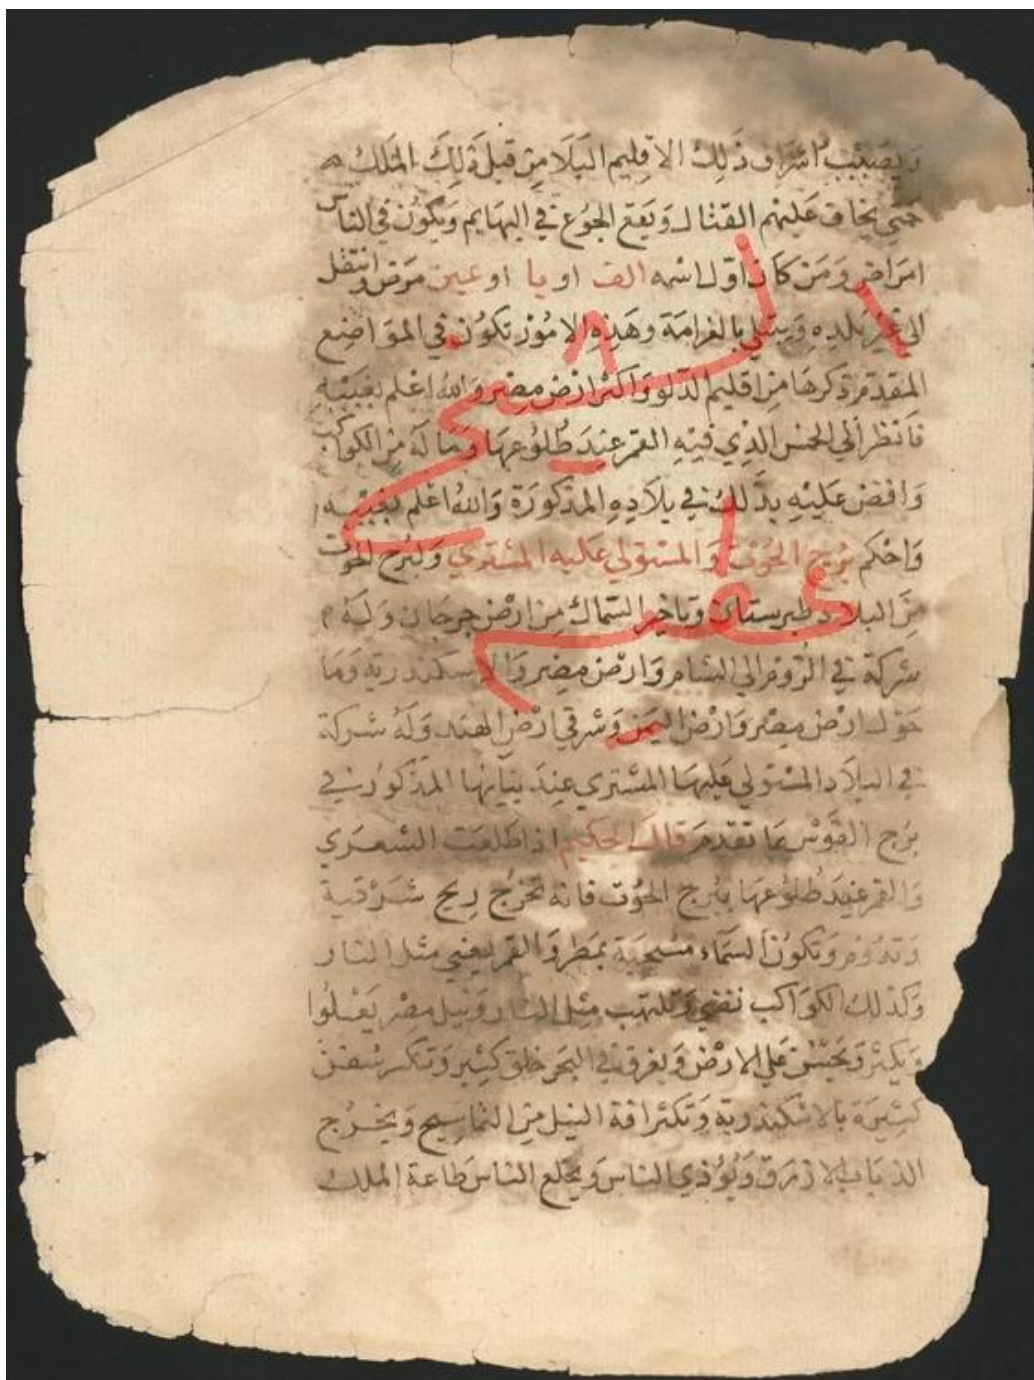 ويصيب اشراف ذلك الاقليم البلا من قبل ذلك الملك
حتى يخاف عليهم القتال ويقع الجوع في البهايم ويكون في الناس
امراض ومن كان اول اسمه الف او يا او عين مرض وانتقل
الى غير بلده ويبتلي بالغرامة وهذه الامور تكون في المواضع
المقدم ذكرها من اقليم الدلو واكثر ارض مصر والله اعلم بغيبه
فانظر الي الخمس الذي فيه القمر عند طلوعها وما له من الكواكب
واقض عليه بذلك في بلاده المذكورة والله اعلم بغيبه
واحكم برج الحوت والمستولي عليه المشتري ولبرج الحوت
من البلاد طبرستان وتاخير السماك من ارض جرجان وله
شركة في الروم الي الشام وارض مصر والاسكندرية وما
حول ارض مصر وارض اليمن وشرقي ارض الهند وله شركة
في البلاد المستولي عليها المشتري عند بيانها المذكور في
برج القوس بما تقدم قال الحكيم اذا طلعت الشعري
والقمر عند طلوعها ببرج الحوت فانه تخرج ريح شرقية
وتدوم وتكون السماء بمطر والقمر يعني مثل النار
وكذلك الكواكب تضي وتلتهب مثل النار ونيل مصر يعلوا
ويكثر علي الارض ويغرق في البحر خلق كثير وتكسر سفن
كثيرة بالاسكندرية وتكثر افة النيل من التماسيح ويخرج
الذباب الازرق ويوذي الناس ويخلع الناس طاعة الملك
الشيخ